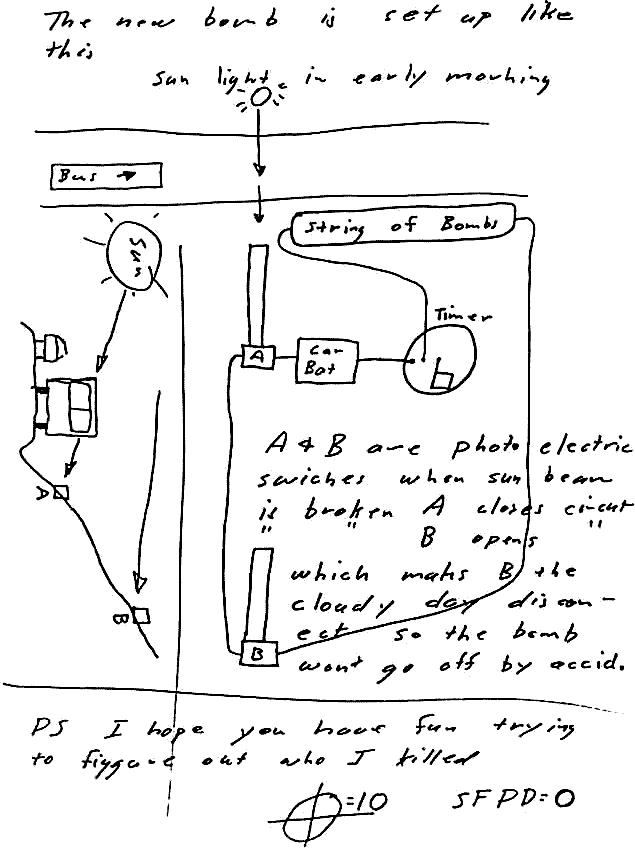 The new bomb is set up like
this
sun light in early morning
Bus →
Sun
String of Bombs
Timer
A
Car
Bat
A
B
A & B are photo electric
swiches when sun beam
is broken A closes circut
" " B opens "
which makes B the
cloudy day discon-
ect so the bomb
wont go off by accid.
B
PS I hope you have fun trying
to figgure out who I killed
=10 SFPD=0